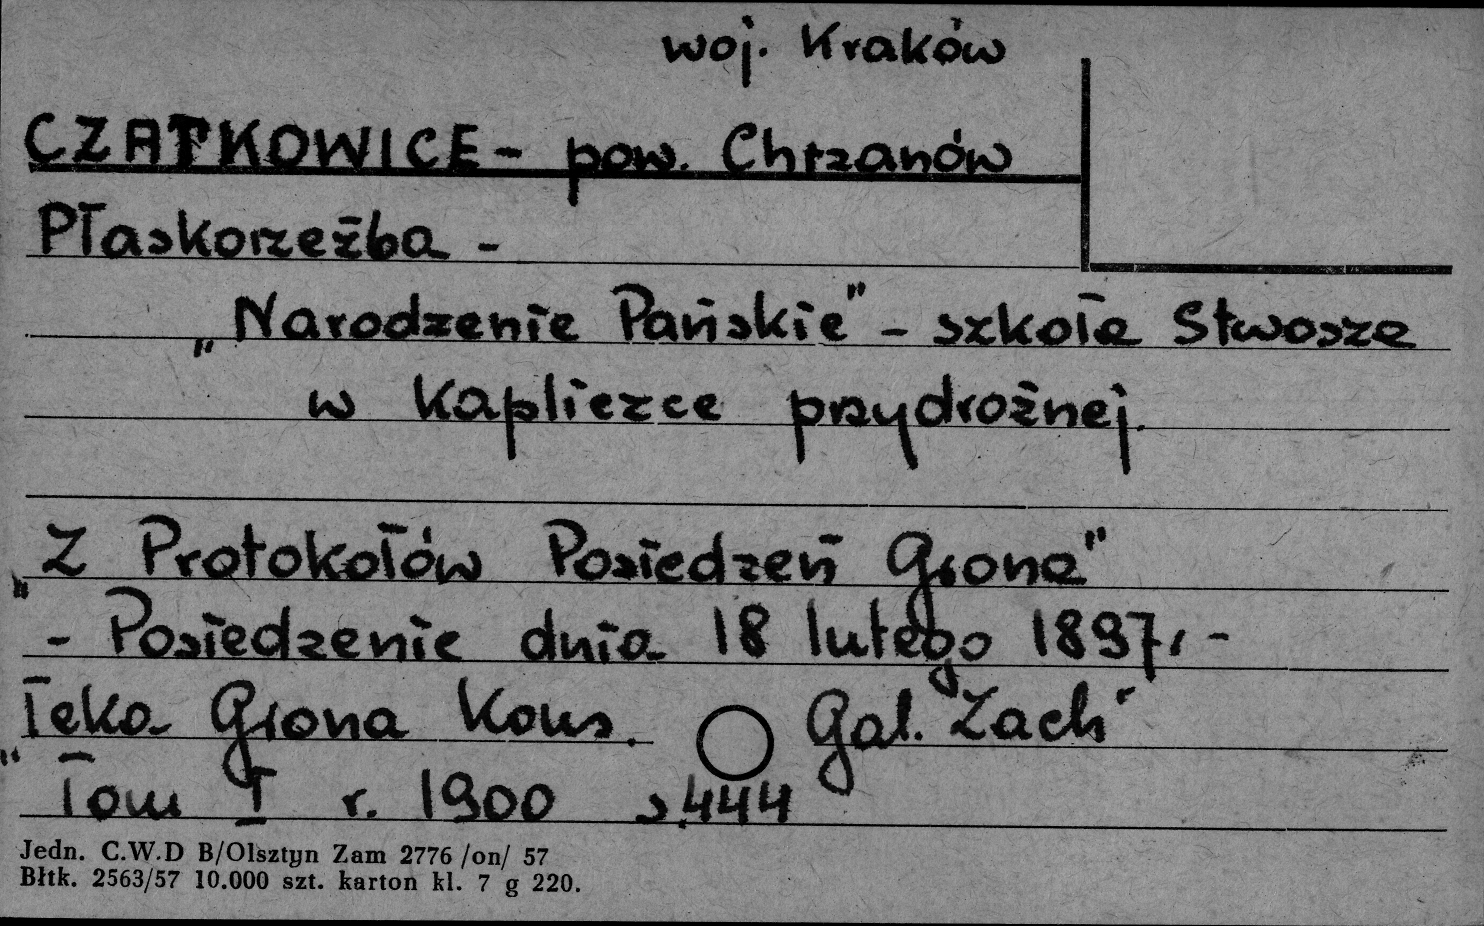 woj. Kraków
CZATKOWICE - pow. Chrzanów
Płaskorzeźba -
„Narodzenie Pańskie" - szkoła Stwosza
w kapliczce przydrożnej.
„Z Protokołów Posiedzeń Grona"
- Posiedzenie dnia 18 lutego 1897, -
„Teka Grona Kons. Gal. Zach"
Tom I r. 1900 s. 444
Jedn. C.W.D B/Olsztyn Zam 2776 /on/ 57
Błtk. 2563/57 10.000 szt. karton kl. 7 g 220.